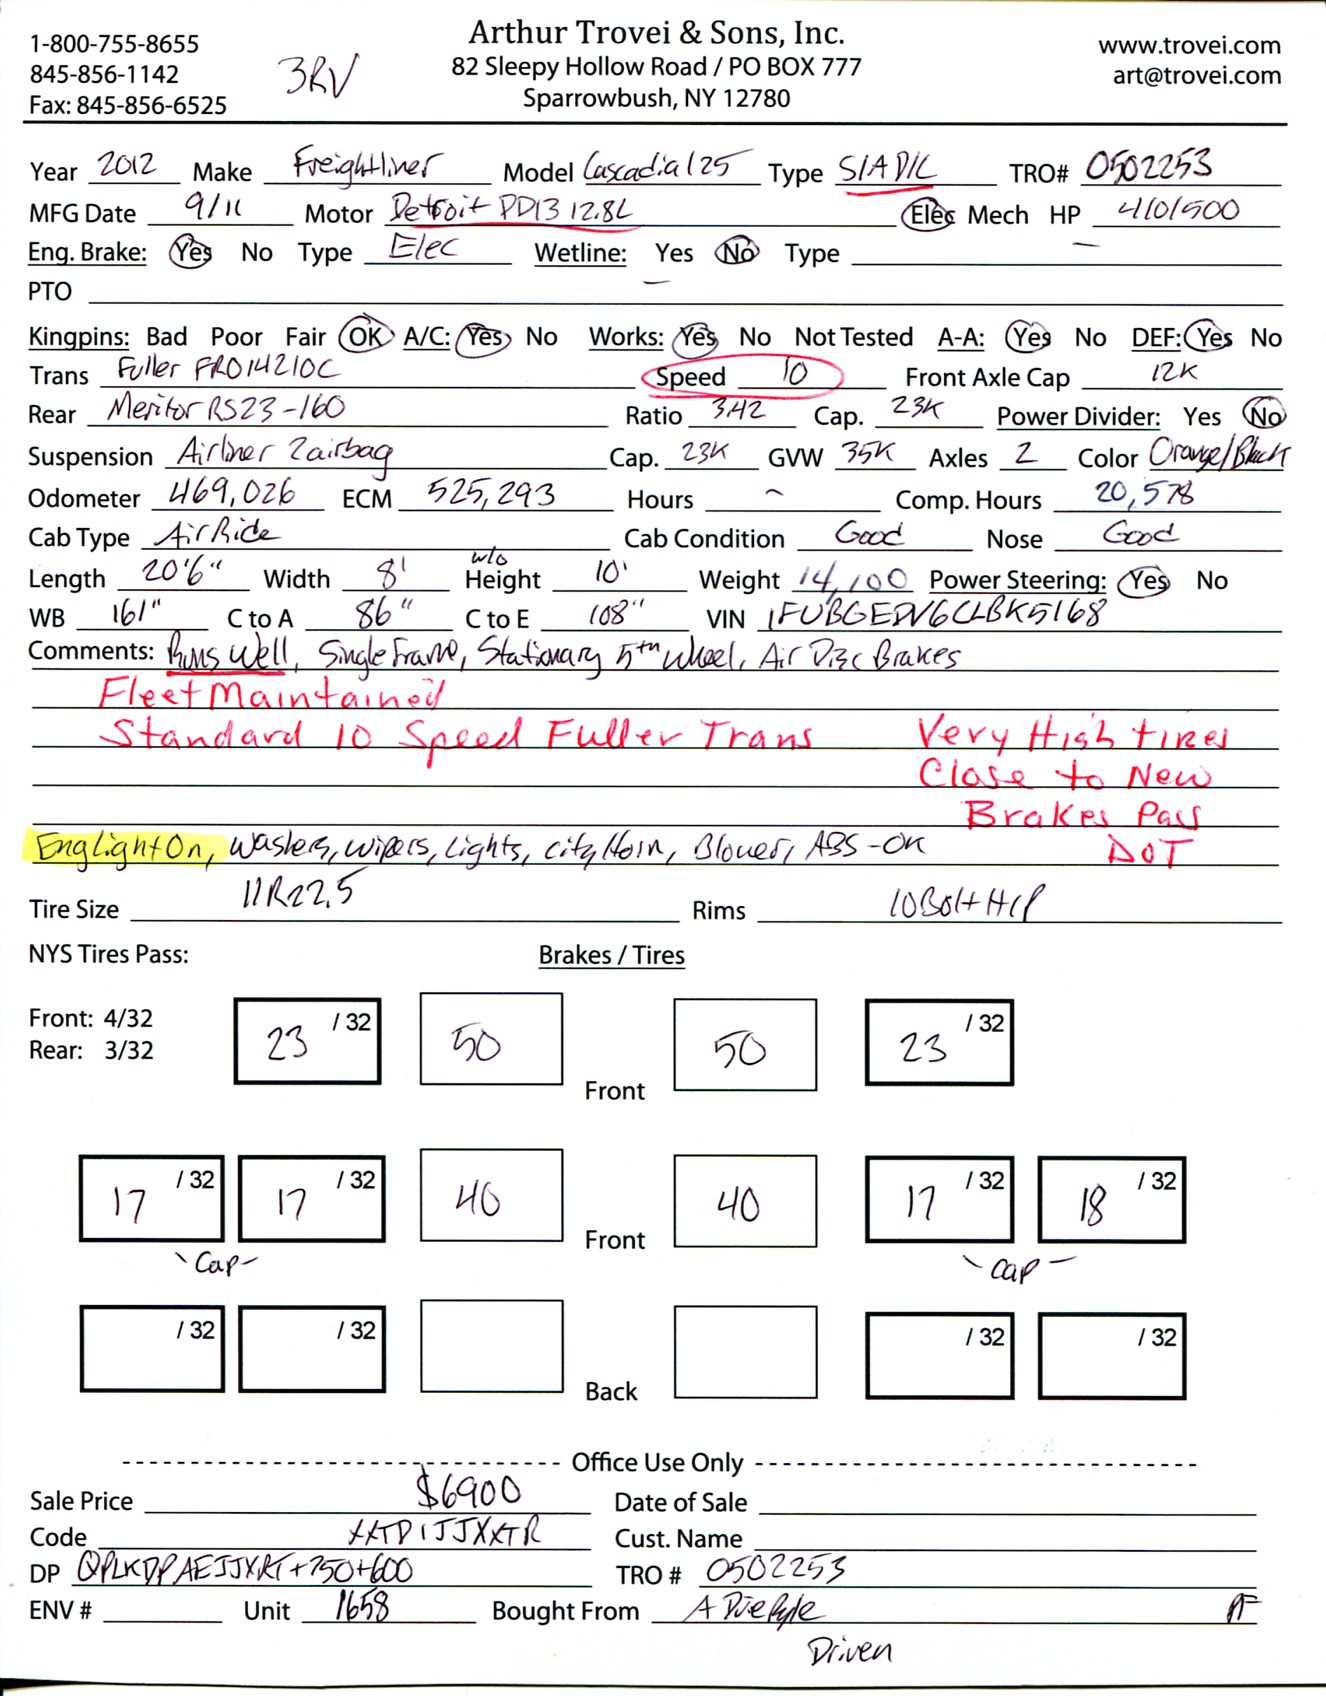 Arthur Trovei & Sons, Inc.
1-800-755-8655 82 Sleepy Hollow Road / PO BOX 777 www.trovei.com
845-856-1142 3RV Sparrowbush, NY 12780 art@trovei.com
Fax: 845-856-6525
Year 2012 Make Freightliner Model Cascadia 125 Type S/A D/C TRO# 0502253
MFG Date 9/11 Motor Detroit DD13 12.8L Elec Mech HP 410/500
Eng. Brake: Yes No Type Elec Wetline: Yes No Type —
PTO —
Kingpins: Bad Poor Fair OK A/C: Yes No Works: Yes No Not Tested A-A: Yes No DEF: Yes No
Trans Fuller FRO14210C Speed 10 Front Axle Cap 12K
Rear Meritor RS23-160 Ratio 3.42 Cap. 23K Power Divider: Yes No
Suspension Airliner 2airbag Cap. 23K GVW 35K Axles 2 Color Orange/Black
Odometer 469,026 ECM 525,293 Hours ~ Comp. Hours 20,578
Cab Type AirRide Cab Condition Good Nose Good
Length 20'6" Width 8' w/o Height 10' Weight 14,100 Power Steering: Yes No
WB 161" C to A 86" C to E 108" VIN 1FUBGEDV6CLBK5168
Comments: Runs Well, Single Frame, Stationary 5th Wheel, Air Disc Brakes
Fleet Maintained
Standard 10 Speed Fuller Trans Very High tires
Close to New
Brakes Pass
Eng Light On, Washers, wipers, Lights, city Horn, Blower, ABS - OK DOT
Tire Size 11R22.5 Rims 10Bolt H/P
NYS Tires Pass: Brakes / Tires
Front: 4/32
Rear: 3/32
23 /32 50 Front 50 23 /32
17 /32 17 /32 40 Front 40 17 /32 18 /32
-Cap- -Cap-
/32 /32 Back /32 /32
Office Use Only
Sale Price $6900 Date of Sale
Code XXTDIJJXXTR Cust. Name
DP QPLKDPAEJJXRT+750+600 TRO # 0502253
ENV # Unit 1658 Bought From A Duie Pyle
Driven